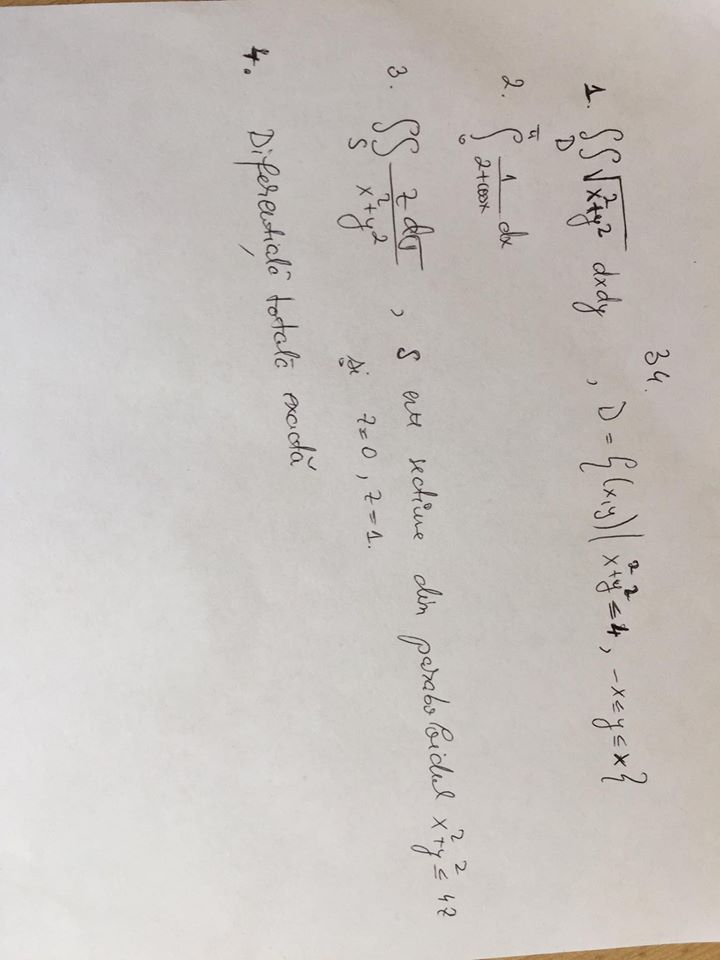 34.
1. ∬_D √(x²+y²) dxdy , D = {(x,y) | x²+y² ≤ 4, -x ≤ y ≤ x}
2. ∫_0^π 1/(2+cosx) dx
3. ∬_S z dσ/(x²+y²) , S secțiune din paraboloidul x²+y² ≤ 4z
și z=0, z=1.
4. Diferențială totală exactă